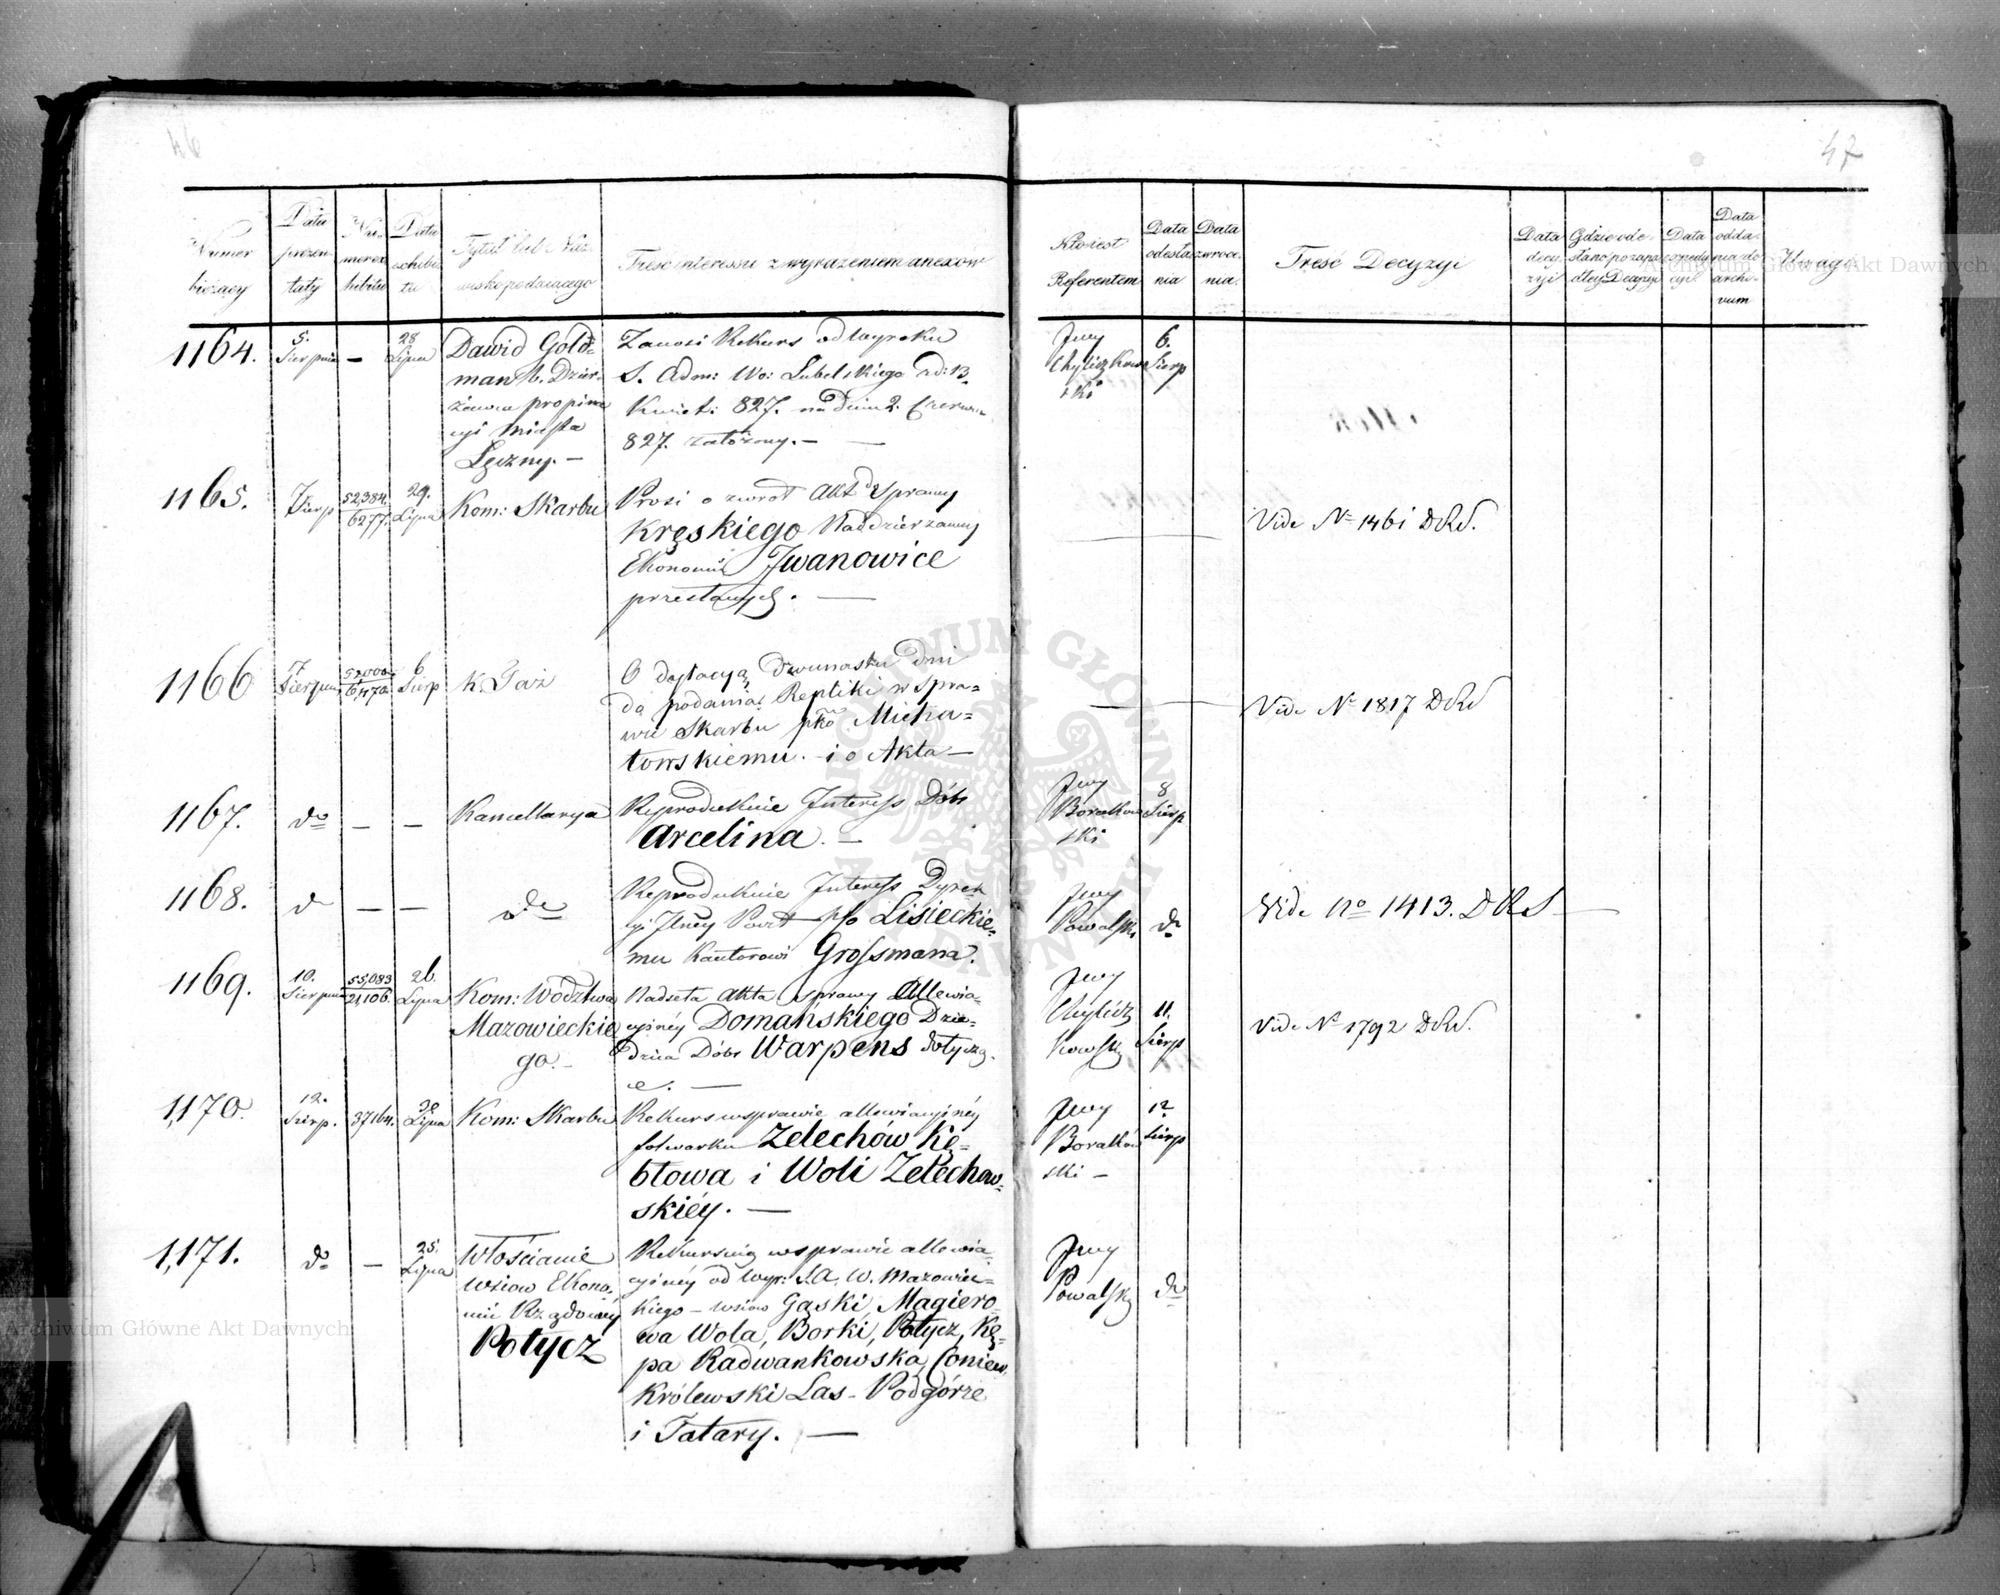 46
47
Numer bieżący
Data prezentaty
Numer exhibitu
Data exhibitu
Tytuł lub Nazwisko podaiącego
Treść interessu z wyrażeniem anexow
Kto iest Referentem
Data odesłania
Data zwrocenia
Treść Decyzyi
Data decyzyi
Data expedycyi
Data oddania do archivum
Uwagi
1164.
5. Sierpnia
—
28 Lipca
Dawid Gold=
man b. Dzier=
żawca propina
cyi Miasta
Łęczny. —
Zanosi Rekurs od wyroku
S. Adm: Wo: Lubelskiego z d: 13
Kwiet: 827. na dniu 2. Czerwca
827. załozony. —
Jwy
Chyliczkow
ski
6. Sierp
1165.
7 Sierp
52,384.
6277.
29. Lipca
Kom: Skarbu
Prosi o zwrot Akt Sprawy
Kręskiego Naddzierzawcy
Ekonomii Iwanowice
przesłanych. —
Vide No 1461 DRS.
1166
7 Sierpnia
52000
6,470
6 Sierp
K. Taż
O dylacyą dwunastu dni
do podania Repliki w spra=
wie Skarbu pko Micha=
łowskiemu. — i o Akta —
Vide No 1817 DRS
1167.
do
—
—
Kancellarya
Reprodukuie Interess Dóbr
Arcelina. —
Jwy
Boratkow
ski
8 Sierp
1168.
do
—
—
do
Reprodukuie Interess Dyrek
cyi Jlney Poczt pko Lisieckie=
mu Kantorowi Grossmana.
Jwy
Powalski
do
Vide No 1413. DRS —
1169.
10. Sierpnia
55,083
21,106.
26. Lipca
Kom: Wodztwa
Mazowieckie
go. —
Nadseła Akta sprawy Allewia=
cyinéy Domańskiego Dzie=
dzica Dóbr Warpens dotyczą
ce. —
Jwy
Chylicz
kowski
11. Sierp
Vide No 1792 DRS.
1,170.
12. Sierp.
37164.
30 Lipca
Kom: Skarbu
Rekurs w sprawie allewiacyjnéy
folwarku Zelechów Kę=
błowa i Woli Zelechow=
skiéy. —
Jwy
Boratkow
ski —
12 Sierp
1,171.
do
—
25. Lipca
Włościanie
wsiow Ekono=
mii Rządowéy
Potycz
Rekursuią w sprawie allewia=
cyinéy od wyr: S. A. W. Mazowiec=
kiego — wsiow Gąski, Magiero=
wa Wola, Borki, Potycz, Kę=
pa Radwankowska, Coniew
Królewski Las — Podgórze
i Tatary. —
Jwy
Powalski
do
Archiwum Główne Akt Dawnych
Archiwum Główne Akt Dawnych
ARCHIWUM GŁÓWNE AKT DAWNYCH